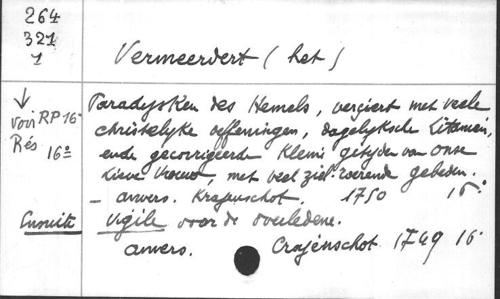 264
321
1
Vermeerdert (het)
↓ Paradysken des Hemels, verçiert met veele
voir RP 16° christelyke oeffeningen, dagelyksche Litanien,
Rés 16° ende gecorrigeerde kleine getyden van onse
Lieve Vrouw, met veel ziel-roerende gebeden.
– anvers. Krapuschot. 1750 16°
Ensuite Vigile voor de overledene.
anvers. Crajenschot 1749 16°